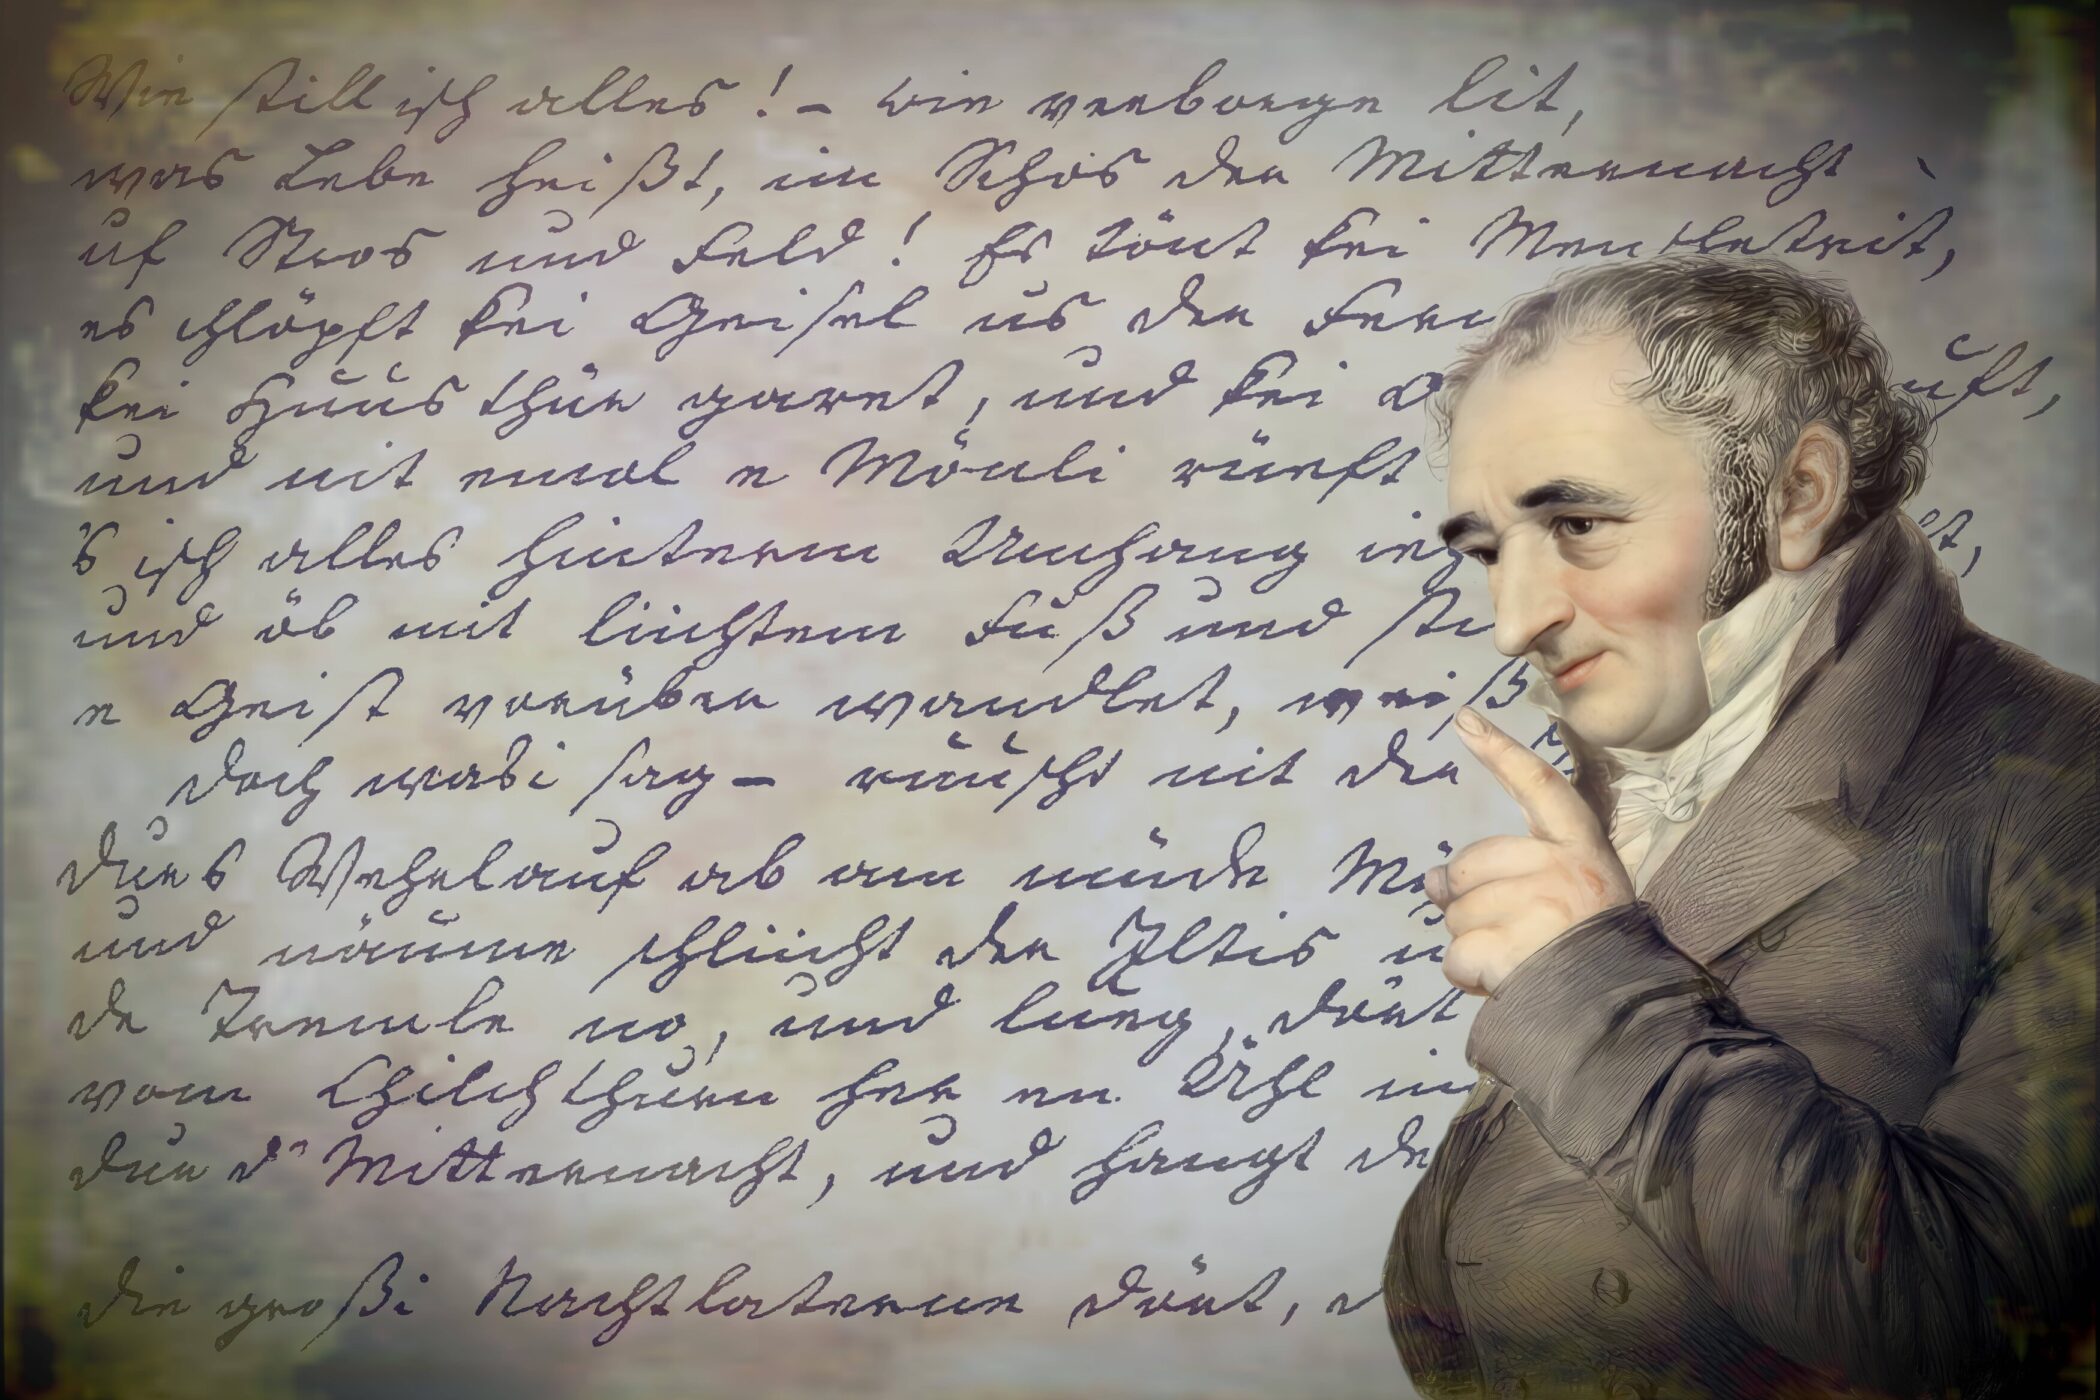 Wie still isch alles! – wie verborge lit,
was Lebe heißt, im Schos der Mitternacht
uf Stros und Feld! Es tönt kei Menschetrit,
es chlöpft kei Geisel us der
kei Huusthür garret, und kei
und nit emol e Mönli rüeft
's isch alles hinterm Umhang
und öb mit liichtem Fuß und
e Geist vorüber wandlet, weiß
Doch wasi sag – ruuscht nit der
ab am müde
und näume schliicht der Iltis
de Tremle no, und lueg, dört
vom Chilchthurn her en Uhl
dur d' Mitternacht, und hangt
die großi Nachtlaterne dört,